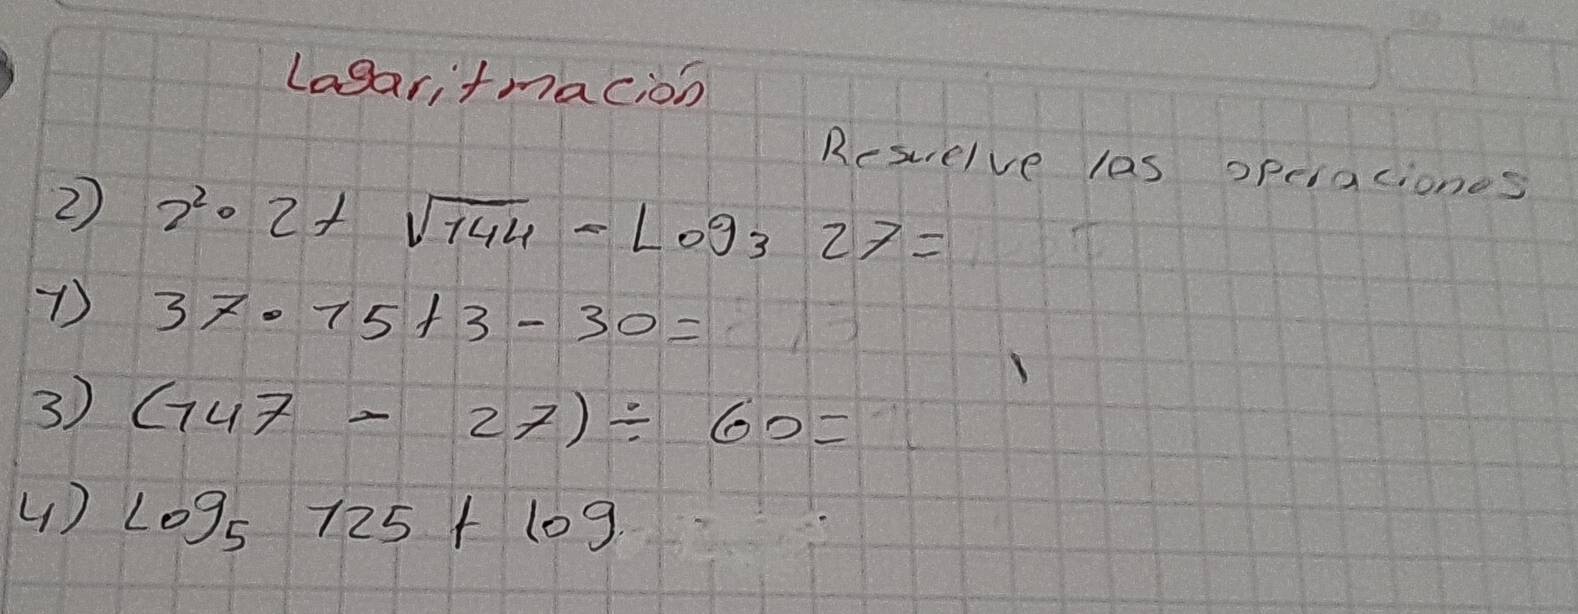 Logaritmación
Resuelve las operaciones
2) 2²• 2+ √144 - Log₃ 27=
1) 37•15+3-30=
3) (147 - 27)÷ 60=
4) Log₅ 125 + log